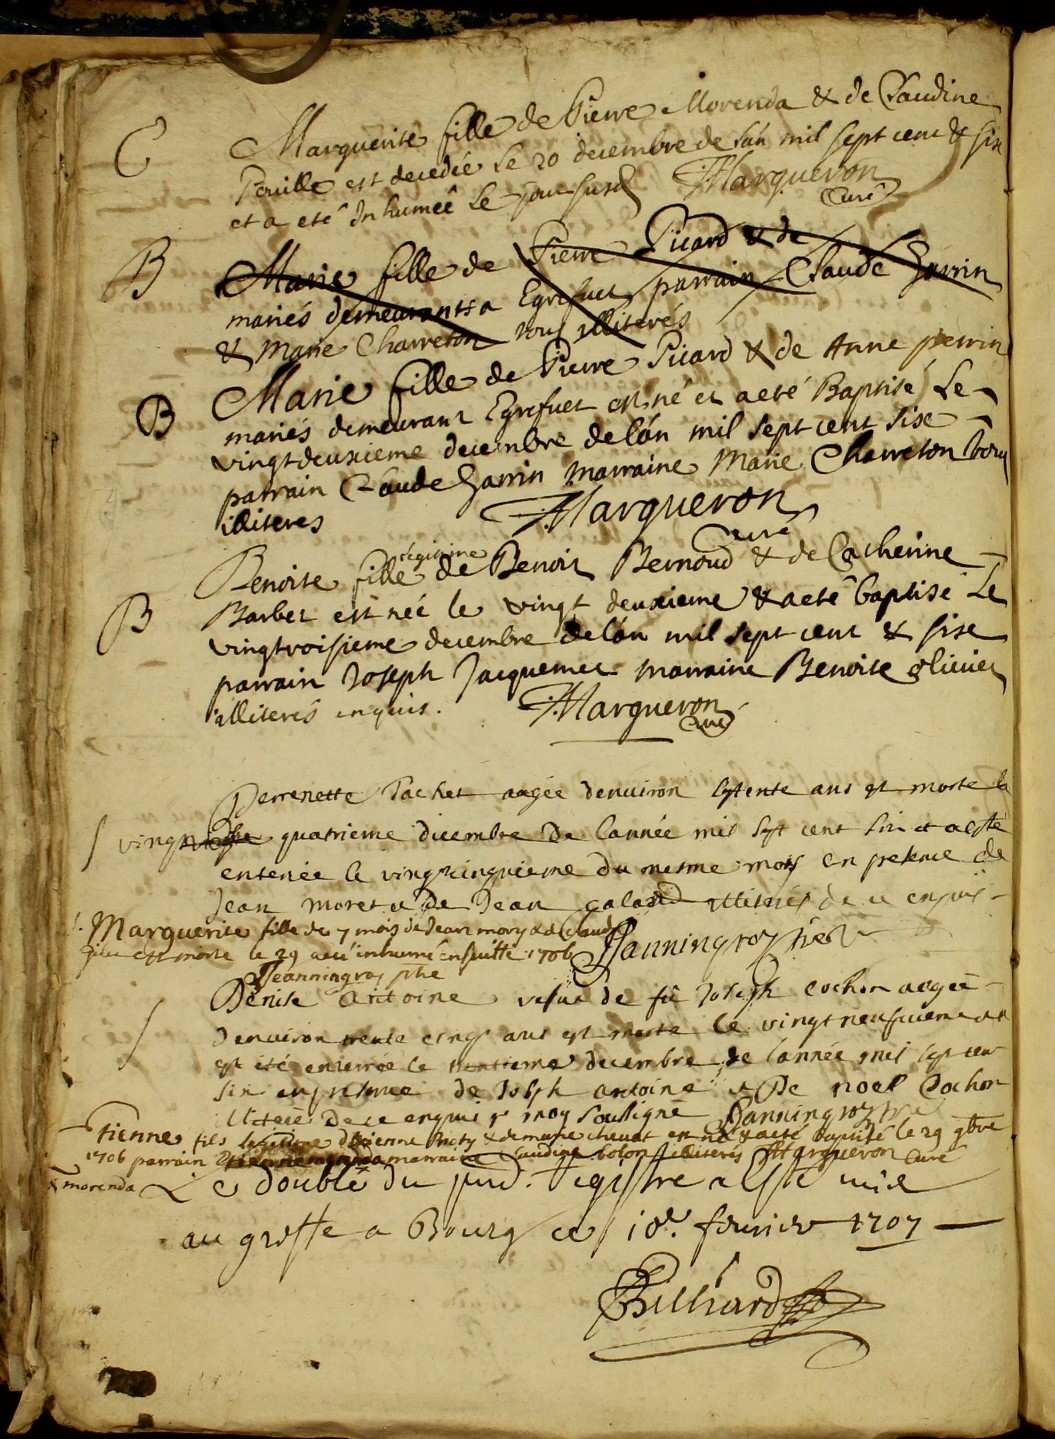 C
Marguerite fille de Pierre Morenda & de Claudine
Peuille est decedée le 20 decembre de lán mil sept cent & six
et a eté Inhumeé le jour susd Margueron
Curé
B
Marie fille de Pierre Picard & de
mariés demeurants a Egrefuet parrain Claude Garrin
& Marie Charreton tous illiterés
B
Marie fille de Pierre Picard & de Anne perrin
mariés demeurant Egrefuet est né et a eté Baptisé Le
vingtdeuxieme decembre de lán mil sept cent sise
parrain Claude Garrin marraine Marie Charreton tous
illiteres Margueron
curé
legitime
Benoite fille de Benoit Bernoud & de Catherine
B
Barbet est née le vingt deuxieme & a eté baptisé Le
vingtroisieme decembre de lán mil sept cent & sise
parrain Joseph Jacquemet marraine Benoite olivier
illiterés enquis. Margueron
curé
Perrenette Pachet aagée denviron septente ans est morte le
vingt quatrieme dicembre de lannée mil sept cent six et a esté
enterrée le vingtcinquieme du mesme mois en presence de
Jean moret & de Jean galand illiterés de ce enquis
Marguerite fille de 7 mois de Jean mory & de Claudine
est morte le 29 a eté inhumé ensuitte 1706 Janningros
Jeanningros
Denise antoine vefue de fû Joseph cochon aagée
denviron trente cinq ans est morte le vingt neufuieme
est été enterrée le trentieme decembre de lannée mil sept cent
six en presence de Joseph antoine & De noel Cochon
illiteré De ce enquis & moy soussigné Janningros
Etienne fils legitime dEtienne & de marie chevat est né & a eté baptisé le 29 9bre
1706 parrain marraine Claudine illiterés Margueron Curé
morenda
Le double du pnd. Registre a esté mis
au greffe a Bourg ce 18e. feurier 1707
Billiard